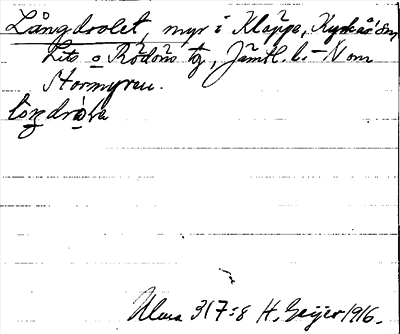 Långdrolet, myr i Kläppe, Kyrkås sn,
Lits o Rödöns tg, Jämtl. l. – N om
Stormyren.
Ulma 317:8 H. Geijer 1916.